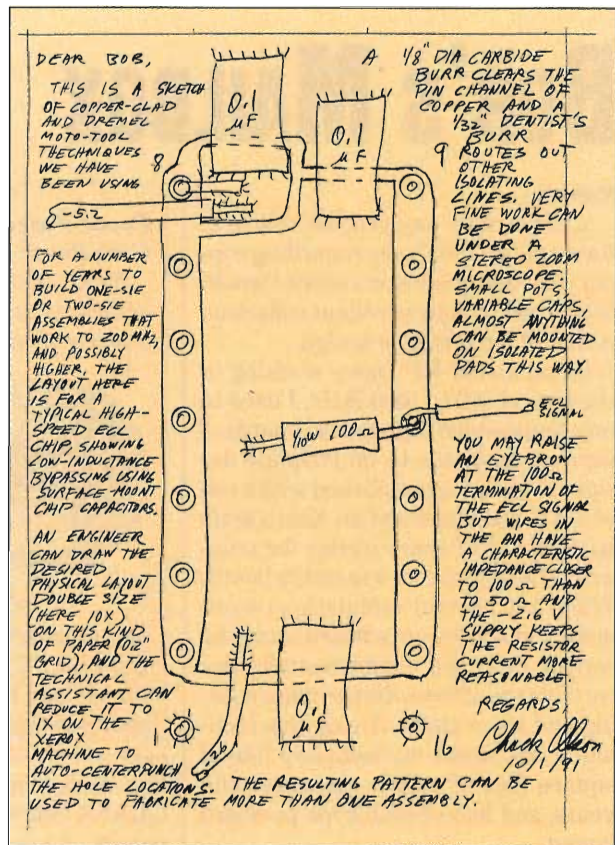 DEAR BOB,
THIS IS A SKETCH
OF COPPER-CLAD
AND DREMEL
MOTO-TOOL
THECHNIQUES
WE HAVE
BEEN USING
FOR A NUMBER
OF YEARS TO
BUILD ONE-SIE
OR TWO-SIE
ASSEMBLIES THAT
WORK TO 200 MHz,
AND POSSIBLY
HIGHER, THE
LAYOUT HERE
IS FOR A
TYPICAL HIGH-
SPEED ECL
CHIP, SHOWING
LOW-INDUCTANCE
BYPASSING USING
SURFACE-MOUNT
CHIP CAPACITORS.
AN ENGINEER
CAN DRAW THE
DESIRED
PHYSICAL LAYOUT
DOUBLE SIZE
(HERE 10X)
ON THIS KIND
OF PAPER (0.2"
GRID), AND THE
TECHNICAL
ASSISTANT CAN
REDUCE IT TO
1X ON THE
XEROX
MACHINE TO
AUTO-CENTERPUNCH
THE HOLE LOCATIONS. THE RESULTING PATTERN CAN BE
USED TO FABRICATE MORE THAN ONE ASSEMBLY.
0.1
μF
0.1
μF
8
9
-5.2
1/10W 100Ω
ECL
SIGNAL
0.1
μF
-2.6
1
16
A 1/8" DIA CARBIDE
BURR CLEARS THE
PIN CHANNEL OF
COPPER AND A
1/32" DENTIST'S
BURR
ROUTES OUT
OTHER
ISOLATING
LINES. VERY
FINE WORK CAN
BE DONE
UNDER A
STEREO ZOOM
MICROSCOPE.
SMALL POTS,
VARIABLE CAPS,
ALMOST ANYTHING
CAN BE MOUNTED
ON ISOLATED
PADS THIS WAY.
YOU MAY RAISE
AN EYEBROW
AT THE 100Ω
TERMINATION OF
THE ECL SIGNAL
BUT WIRES IN
THE AIR HAVE
A CHARACTERISTIC
IMPEDANCE CLOSER
TO 100Ω THAN
TO 50Ω AND
THE -2.6 V
SUPPLY KEEPS
THE RESISTOR
CURRENT MORE
REASONABLE.
REGARDS,
Chuck Olson
10/1/91